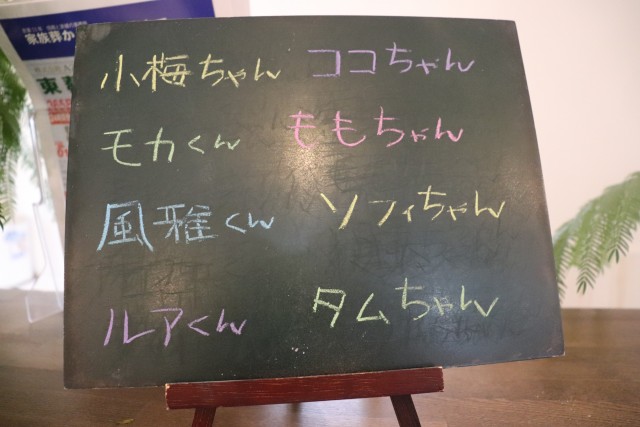 家族葬か
東
小梅ちゃん ココちゃん
モカくん ももちゃん
風雅くん ソフィちゃん
ルアくん タムちゃん